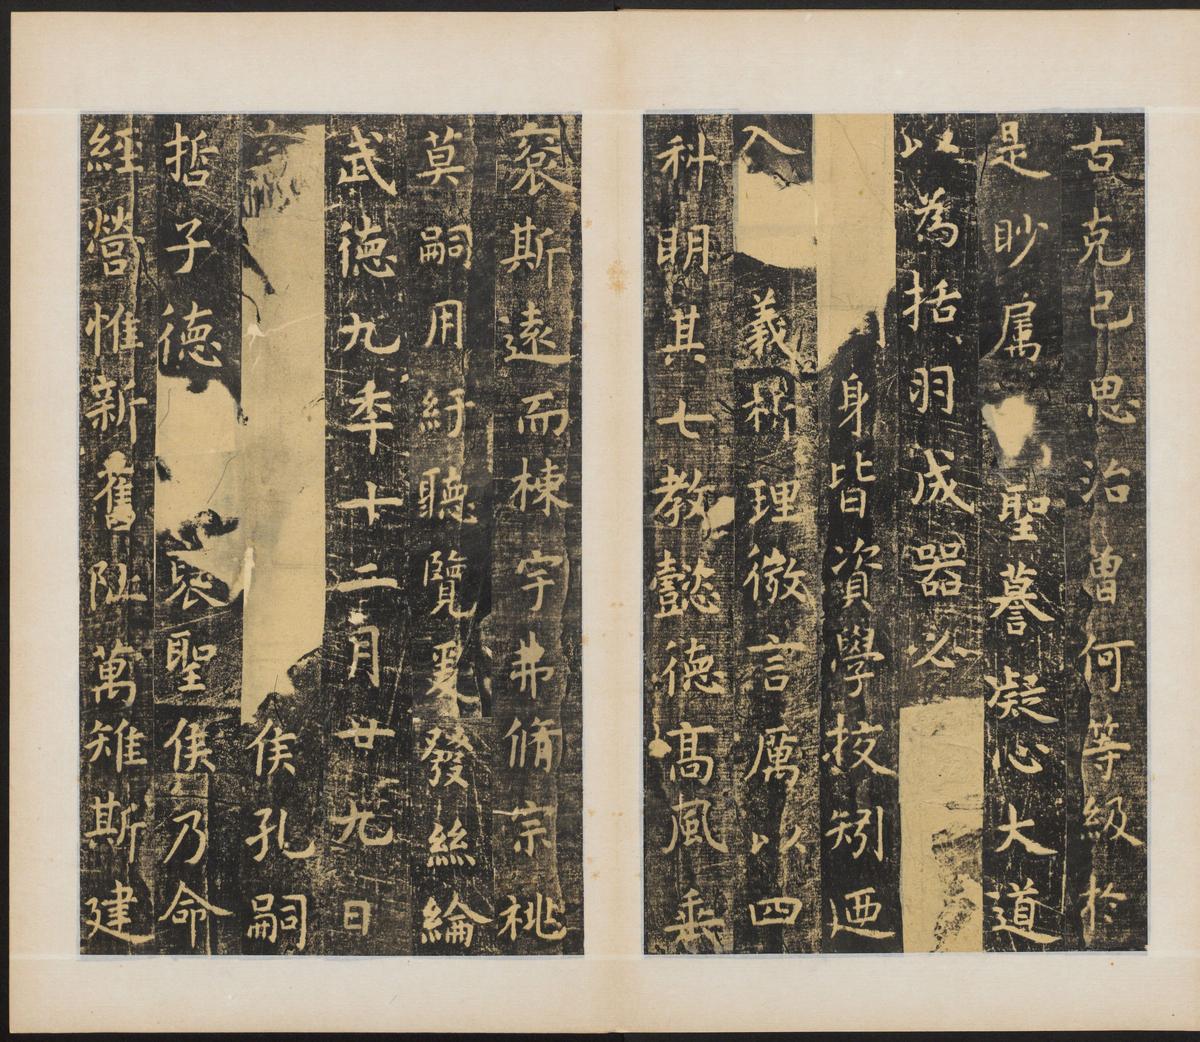 古克己思治曾何等級於
是眇属聖謩凝心大道
以為括羽成器必
身皆資學挍矧迺
入義析理微言厲以四
科明其七教懿德髙風垂
裒斯遠而棟宇弗脩宗祧
莫嗣用紆聽覽爰發絲綸
武德九年十二月廿九日
侯孔嗣
哲子德襃聖侯乃命
經營惟新舊阯萬雉斯建